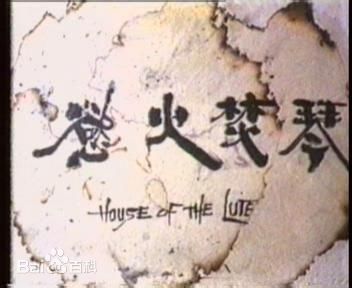 慾火焚琴
HOUSE OF THE LUTE
Bai百科